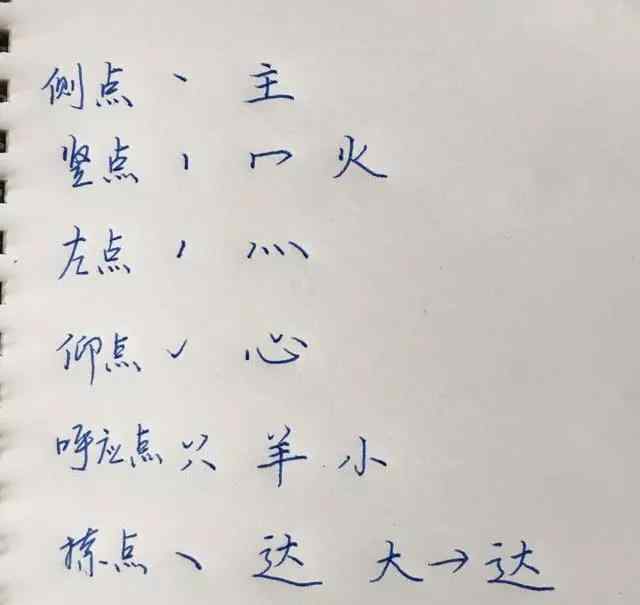 侧点 丶 主
竖点 冖 火
左点 灬
仰点 心
呼应点 羊 小
捺点 ㇏ 达 大→达